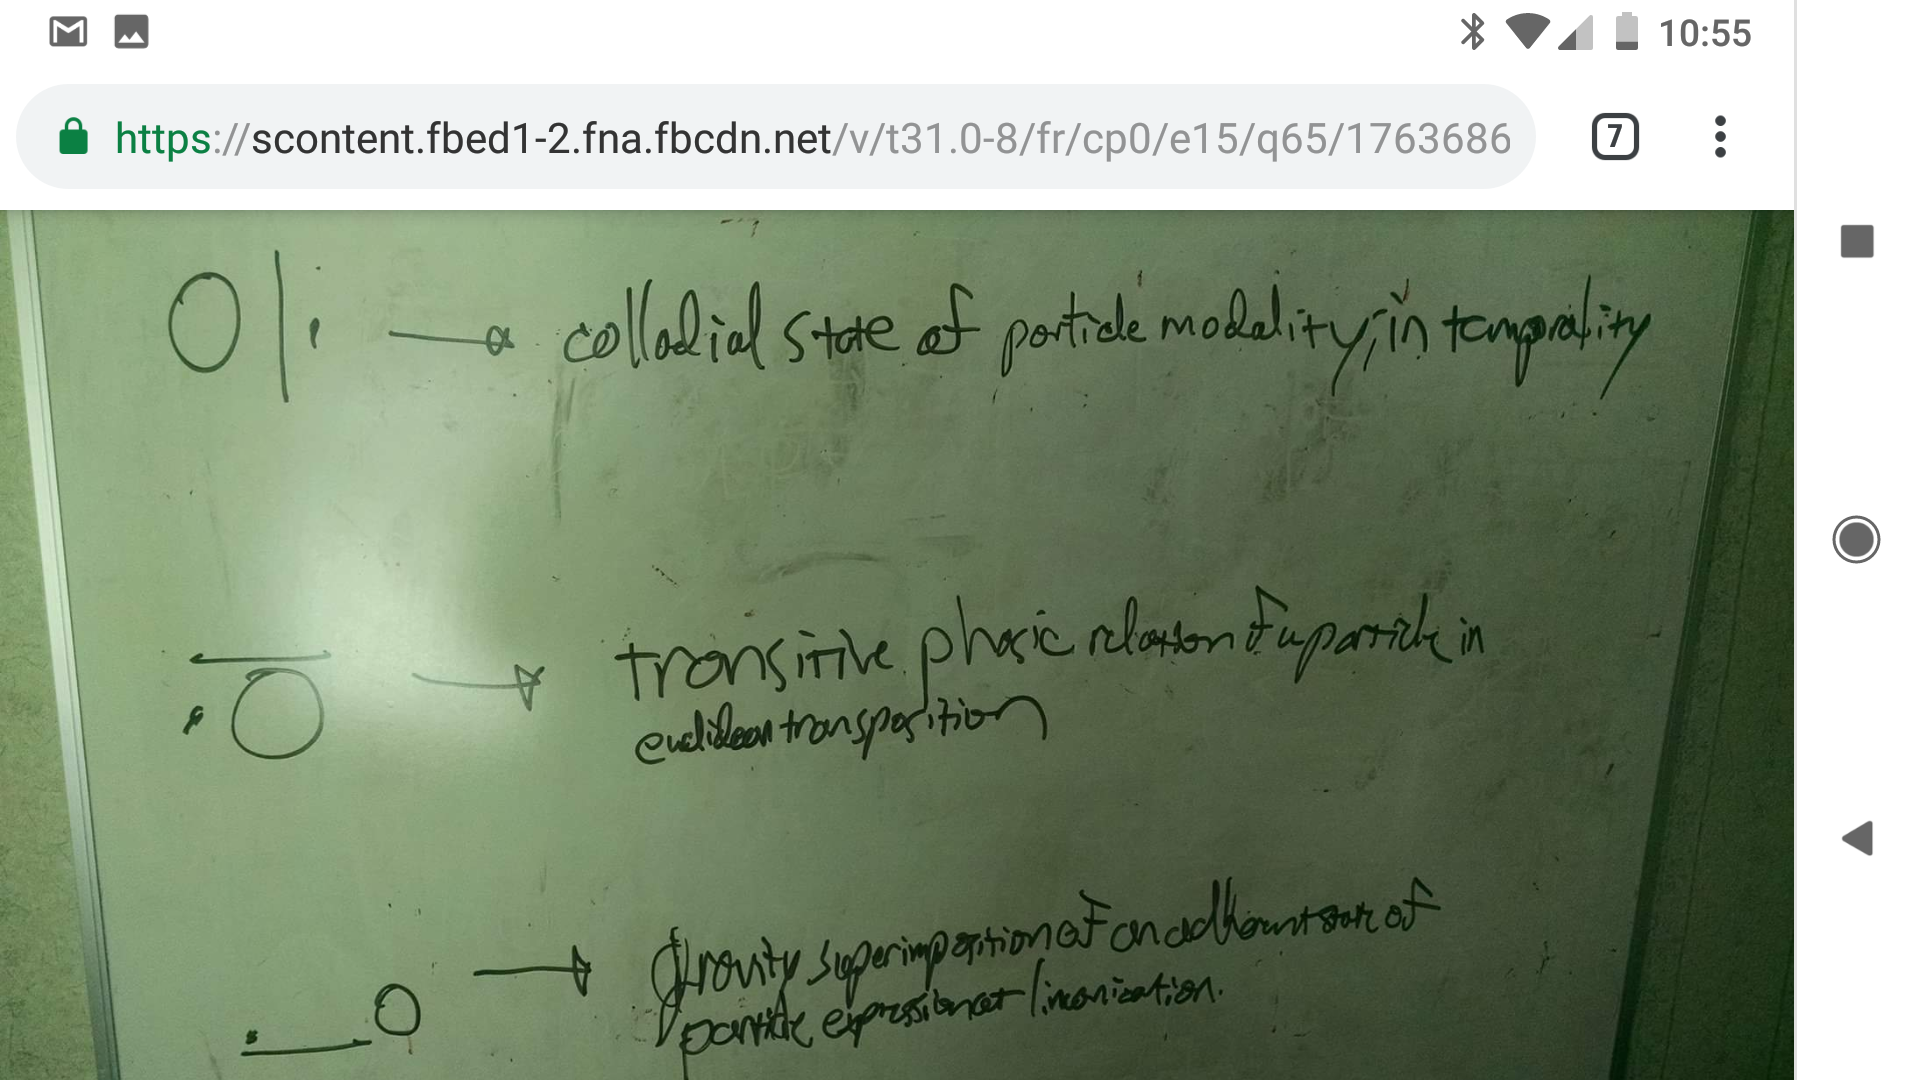 10:55
https://scontent.fbed1-2.fna.fbcdn.net/v/t31.0-8/fr/cp0/e15/q65/1763686
7
collodial state of particle modality, in temporality
transitive phasic relation of a particle in
euclidean transposition
gravity superimposition of an adherent state of
particle expression